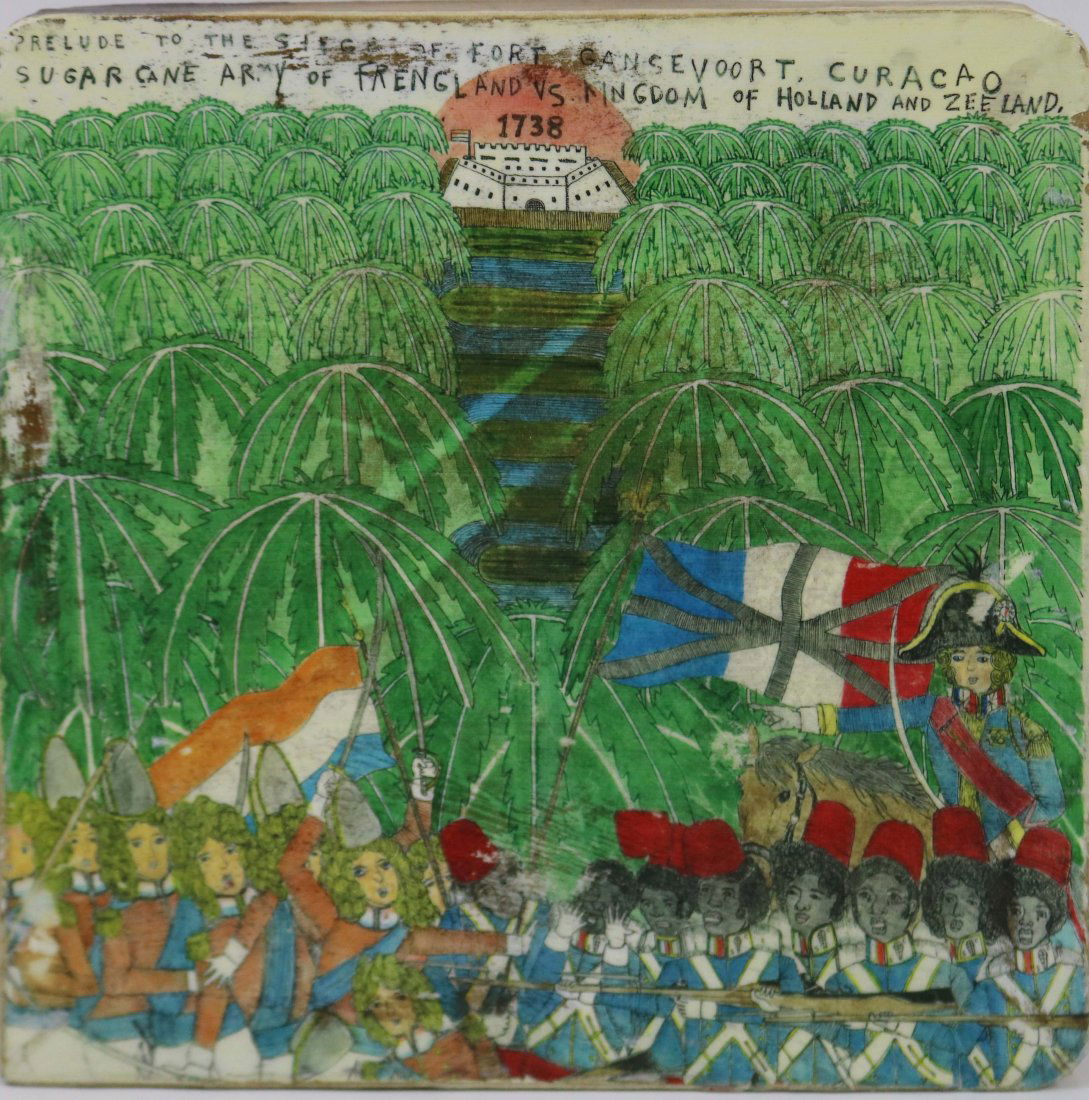 PRELUDE TO THE SIEGE OF FORT GANSEVOORT, CURACAO
SUGARCANE ARMY OF FRENGLAND VS. KINGDOM OF HOLLAND AND ZEELAND.
1738